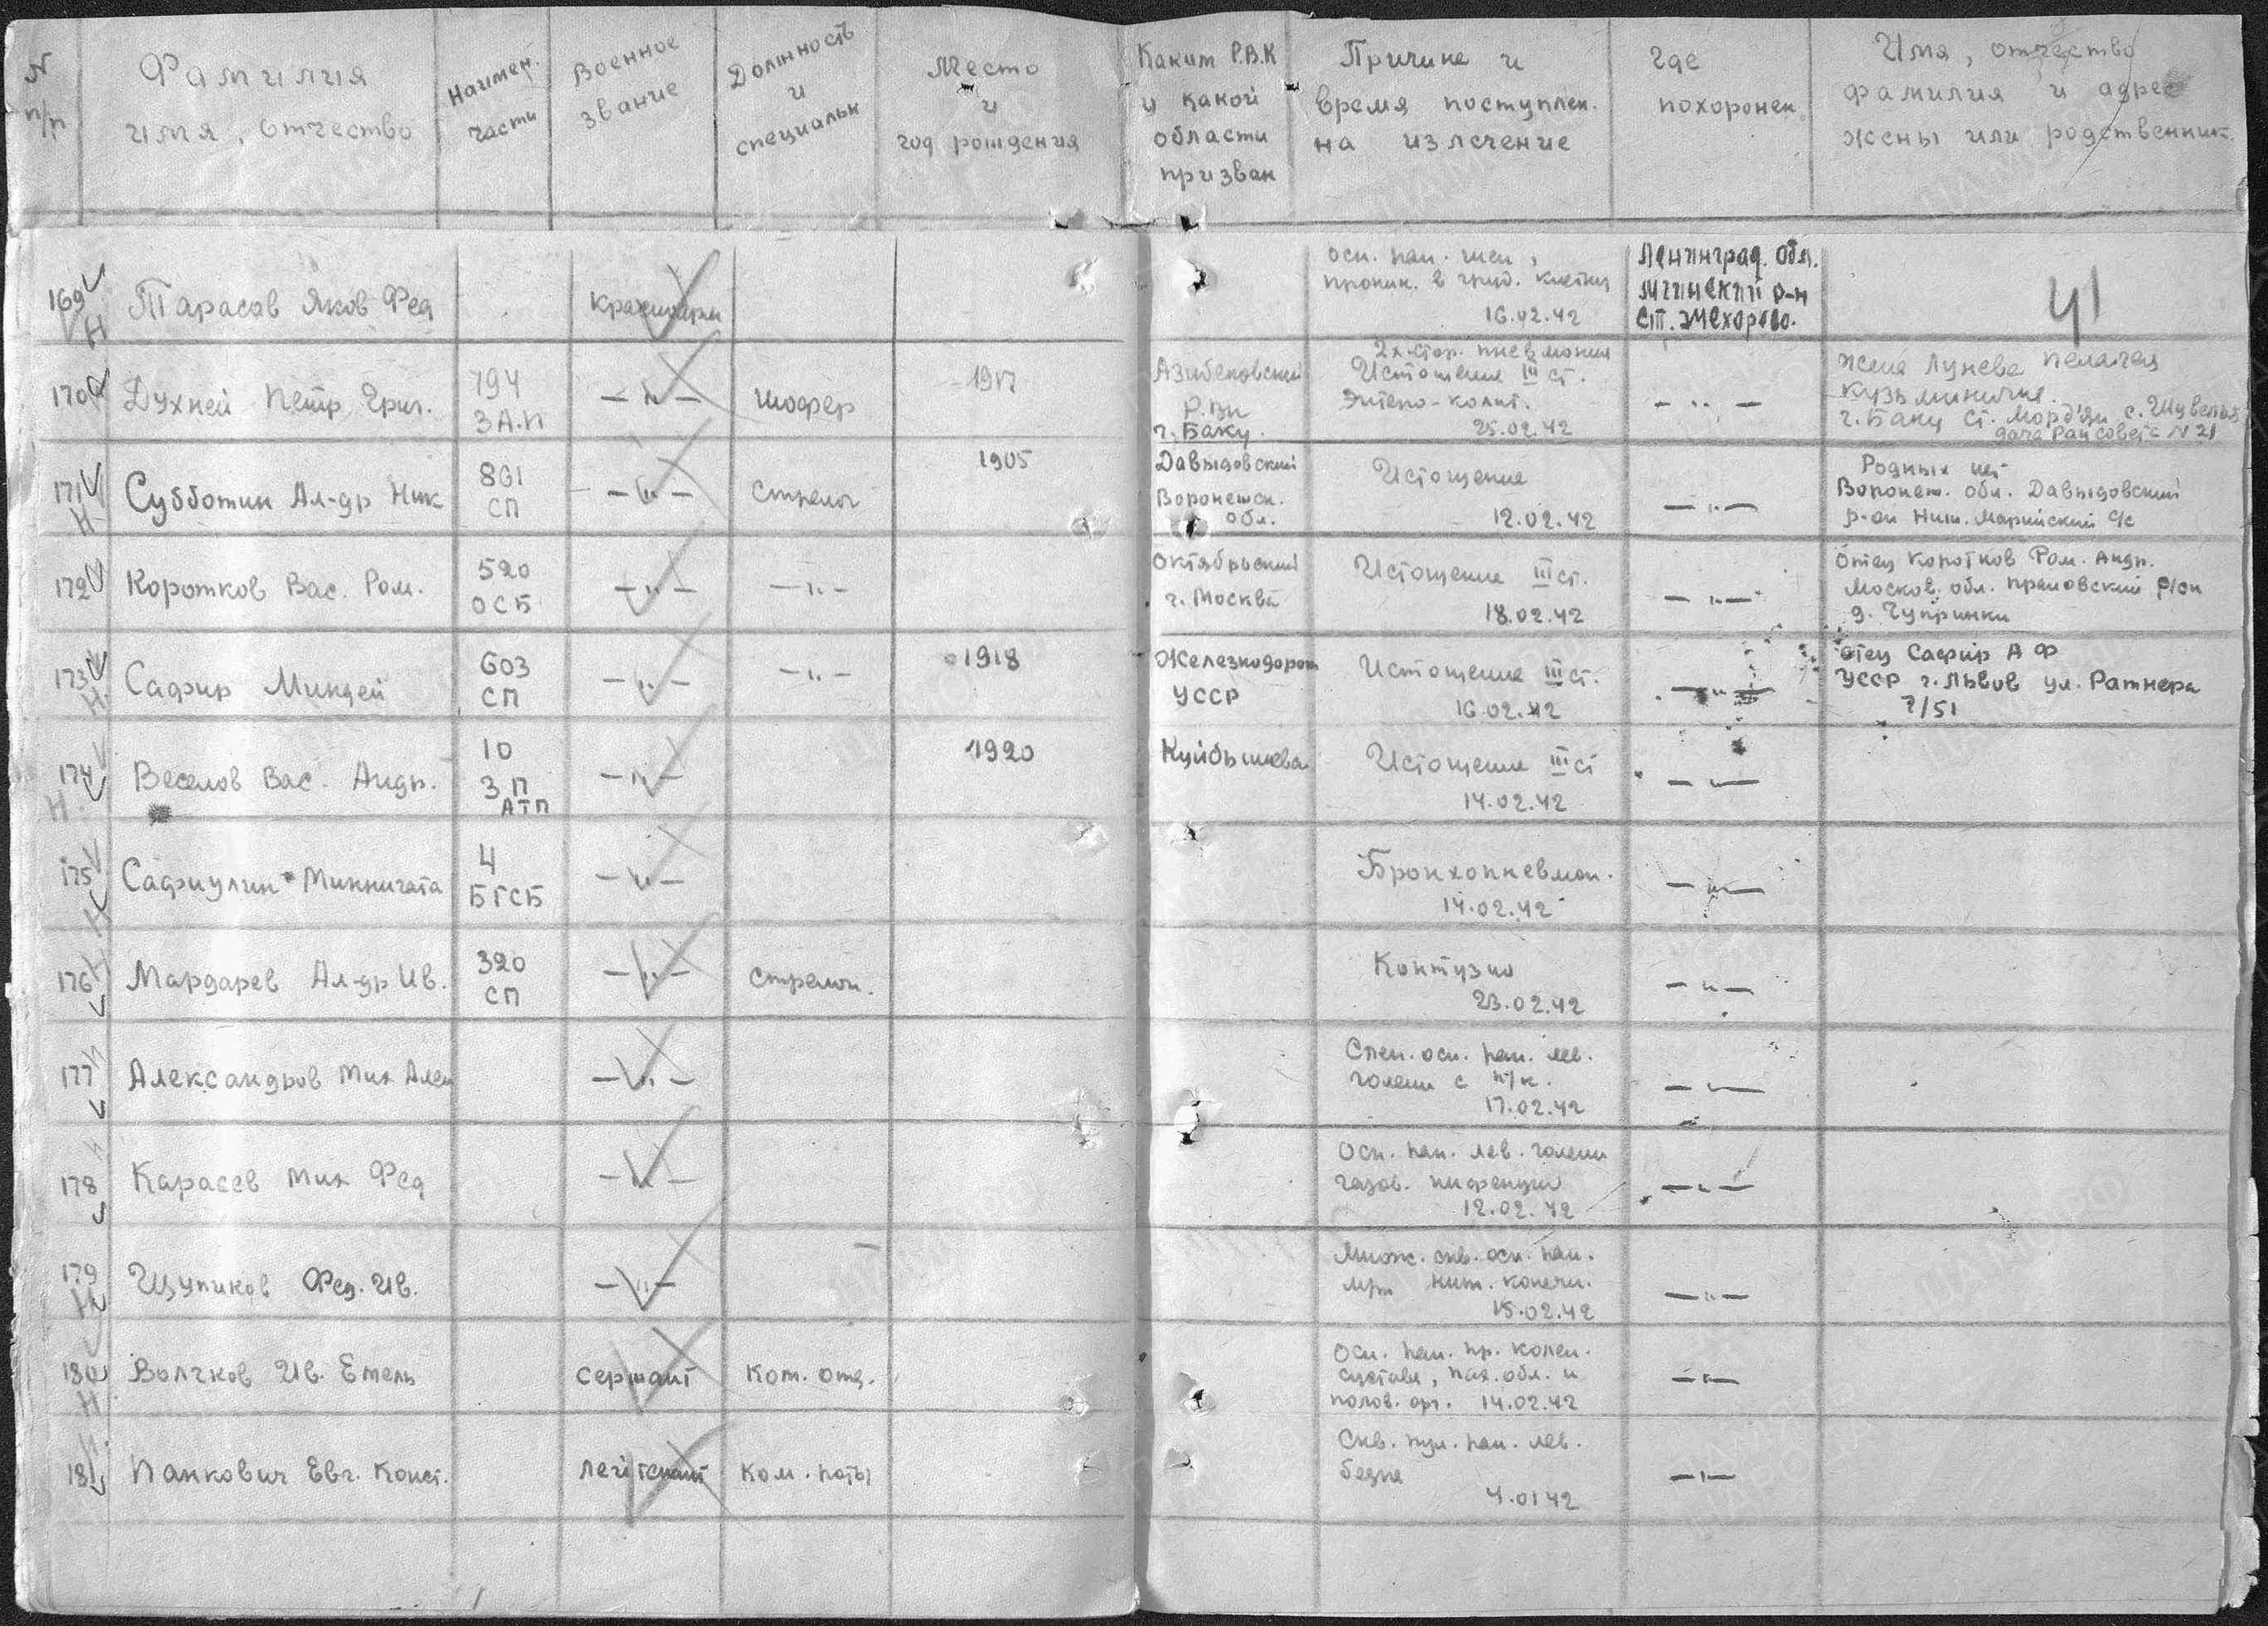 N п/п
Фамилия имя, отчество
Наимен. части
Военное звание
Должность и специальн
Место и год рождения
Каким Р.В.К и какой области призван
Причина и время поступлен. на излечение
где похоронен
Имя, отчество фамилия и адрес жены или родственник.
41
169 Тарасов Яков Фед
оск. ран. шеи,
проник. в груд. клетку
16.02.42
Ленинград. обл.
Мгинский р-н
ст. Жихорево.
170 Духней Петр Григ.
794
З А.П
— " — шофер 1917
Азибековский
Р.ВК
г. Баку.
2х-стор. пневмония
Истощение III ст.
Энтеро-колит.
25.02.42
— " —
жена Лунева Пелагея
Кузьминична.
г. Баку ст. с. Шувеляны
дача Райсовета N 21
171 Субботин Ал-др Ник
861
СП
— " — стрелок 1905
Давыдовский
Воронежск.
обл.
Истощение
12.02.42
— " —
Родных нет
Воронеж. обл. Давыдовский
р-он Ниж. Марийский с/с
172 Коротков Вас. Ром.
520
ОСБ
— " — — " —
Октябрьский
г. Москва
Истощение III ст.
18.02.42
— " —
Отец Коротков Ром. Андр.
Москов. обл. р/он
д. Чупринки
173 Сафир Миндей
603
СП
— " — — " — 1918
Железнодорож
УССР
Истощение III ст.
16.02.42
— " —
отец Сафир А Ф
УССР г. Львов ул. Ратнера
7/51
174 Веселов Вас. Андр.
10
З П
АТП
— " — 1920
Куйбышева
Истощение III ст
14.02.42
— " —
175 Сафиулин Миннигата
4
БГСБ
— " —
Бронхопневмон.
14.02.42
— " —
176 Мардарев Ал-др Ив.
320
СП
— " — стрелок.
Контузия
23.02.42
— " —
177 Александров Мих Алек
— " —
Слеп. оск. ран. лев.
голени с п/к.
17.02.42
— " —
178 Карасев Мих Фед
— " —
Оск. ран. лев. голени
газов. инфекция
12.02.42
— " —
179 Щупиков Фед. Ив.
— " —
Множ. скв. оск. ран.
ниж. конечн.
15.02.42
— " —
180 Волчков Ив. Емель
сержант Ком. отд.
Оск. ран. пр. колен.
сустава, пах. обл. и
полов. орг. 14.02.42
— " —
181 Панкович Евг. Конст.
лейтенант ком. роты
Скв. пул. ран. лев.
бедра
4.01 42
— " —